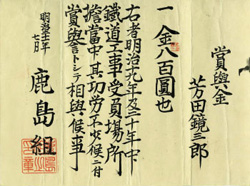 賞與金
芳田鏡三郎
一金八百圓也
右者明治九年及三十年中
鐵道工事受員場所
擔當中其功労不尠候ニ付
賞與金トシテ相與候事
明治三十一年
七月
鹿島組